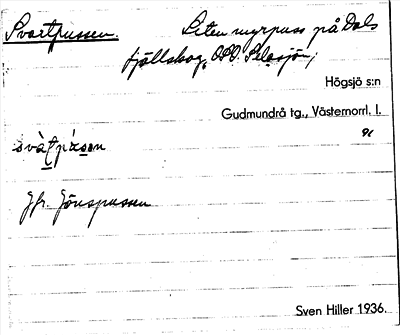 Svartpussen. Liten myrpuss på Dals
fjällskog, OSO. Selasjön,
Högsjö s:n
Gudmundrå tg., Västernorrl. l.
Jfr. Jönspussen
Sven Hiller 1936.